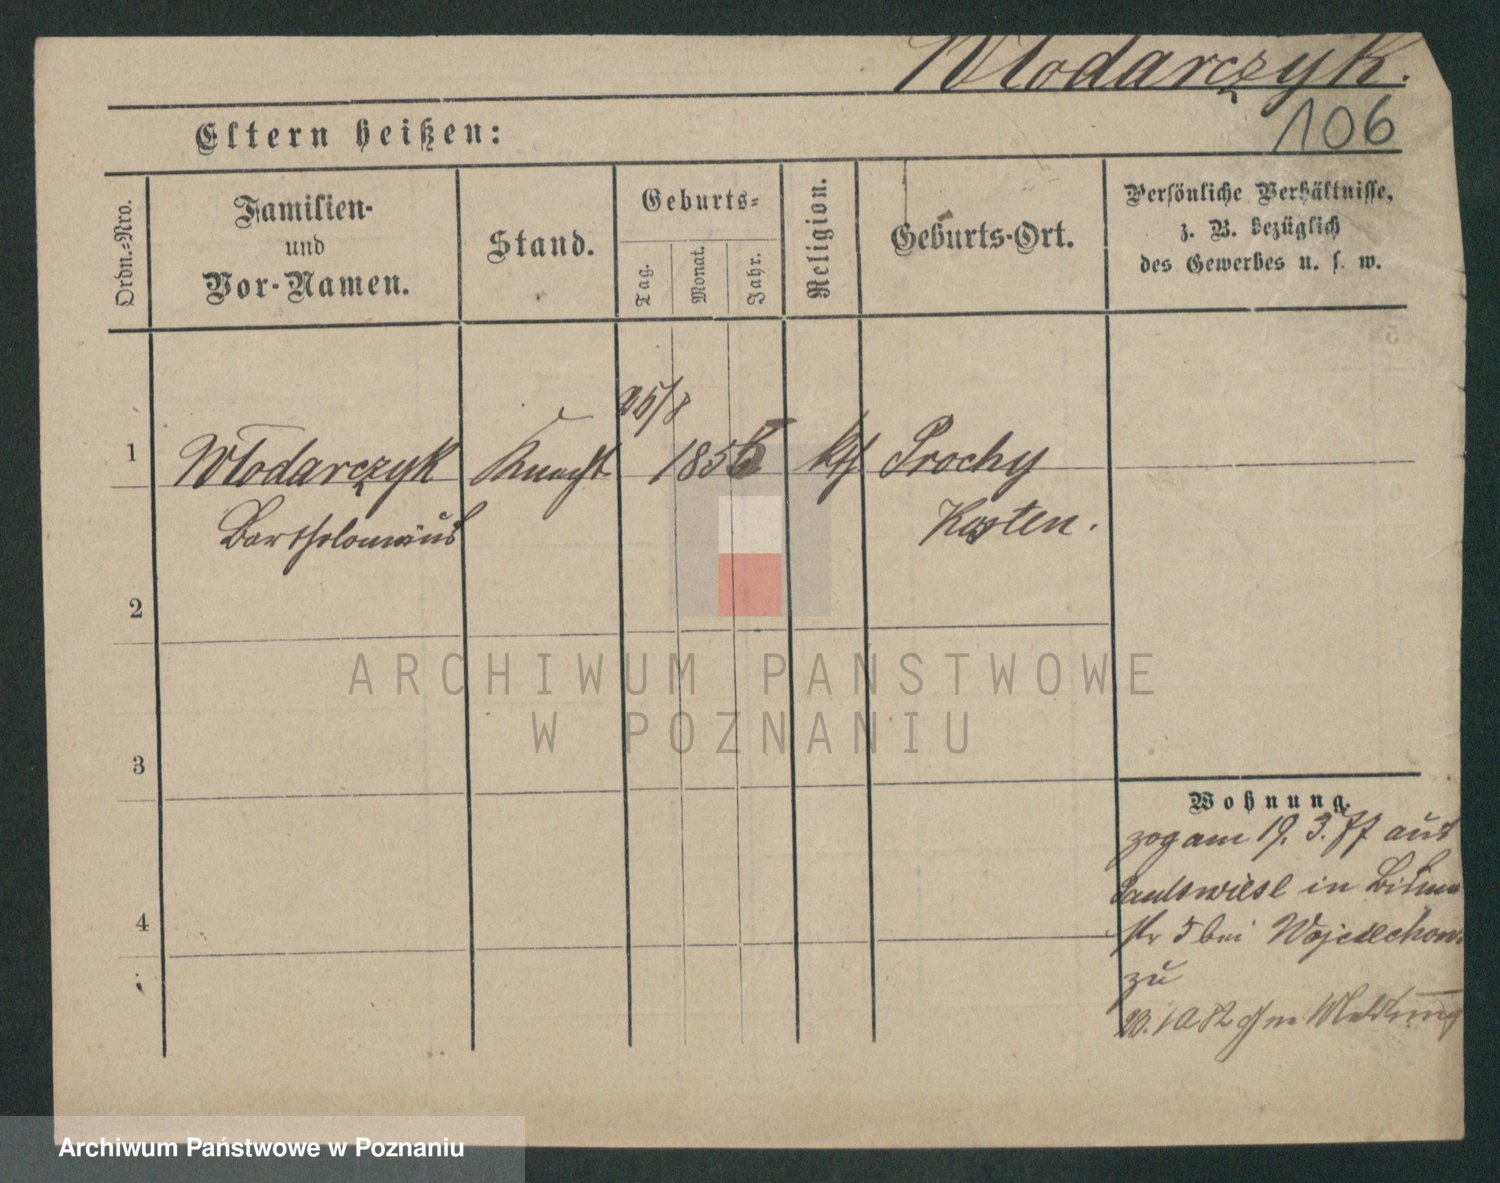 Włodarczyk.
106
Eltern heißen:
Ordn.-Nro.
Familien-
und
Vor-Namen.
Stand.
Geburts-
Tag.
Monat.
Jahr.
Religion.
Geburts-Ort.
Persönliche Verhältnisse,
z. B. bezüglich
des Gewerbes u. s. w.
25/8
1 Włodarczyk Knecht 1856 kth Prochy
Bartholomäus Kosten.
2
3
4
Wohnung.
zog am 19. 3. 77 aus
in
5 bei
zu
Meldung
ARCHIWUM PAŃSTWOWE
W POZNANIU
Archiwum Państwowe w Poznaniu